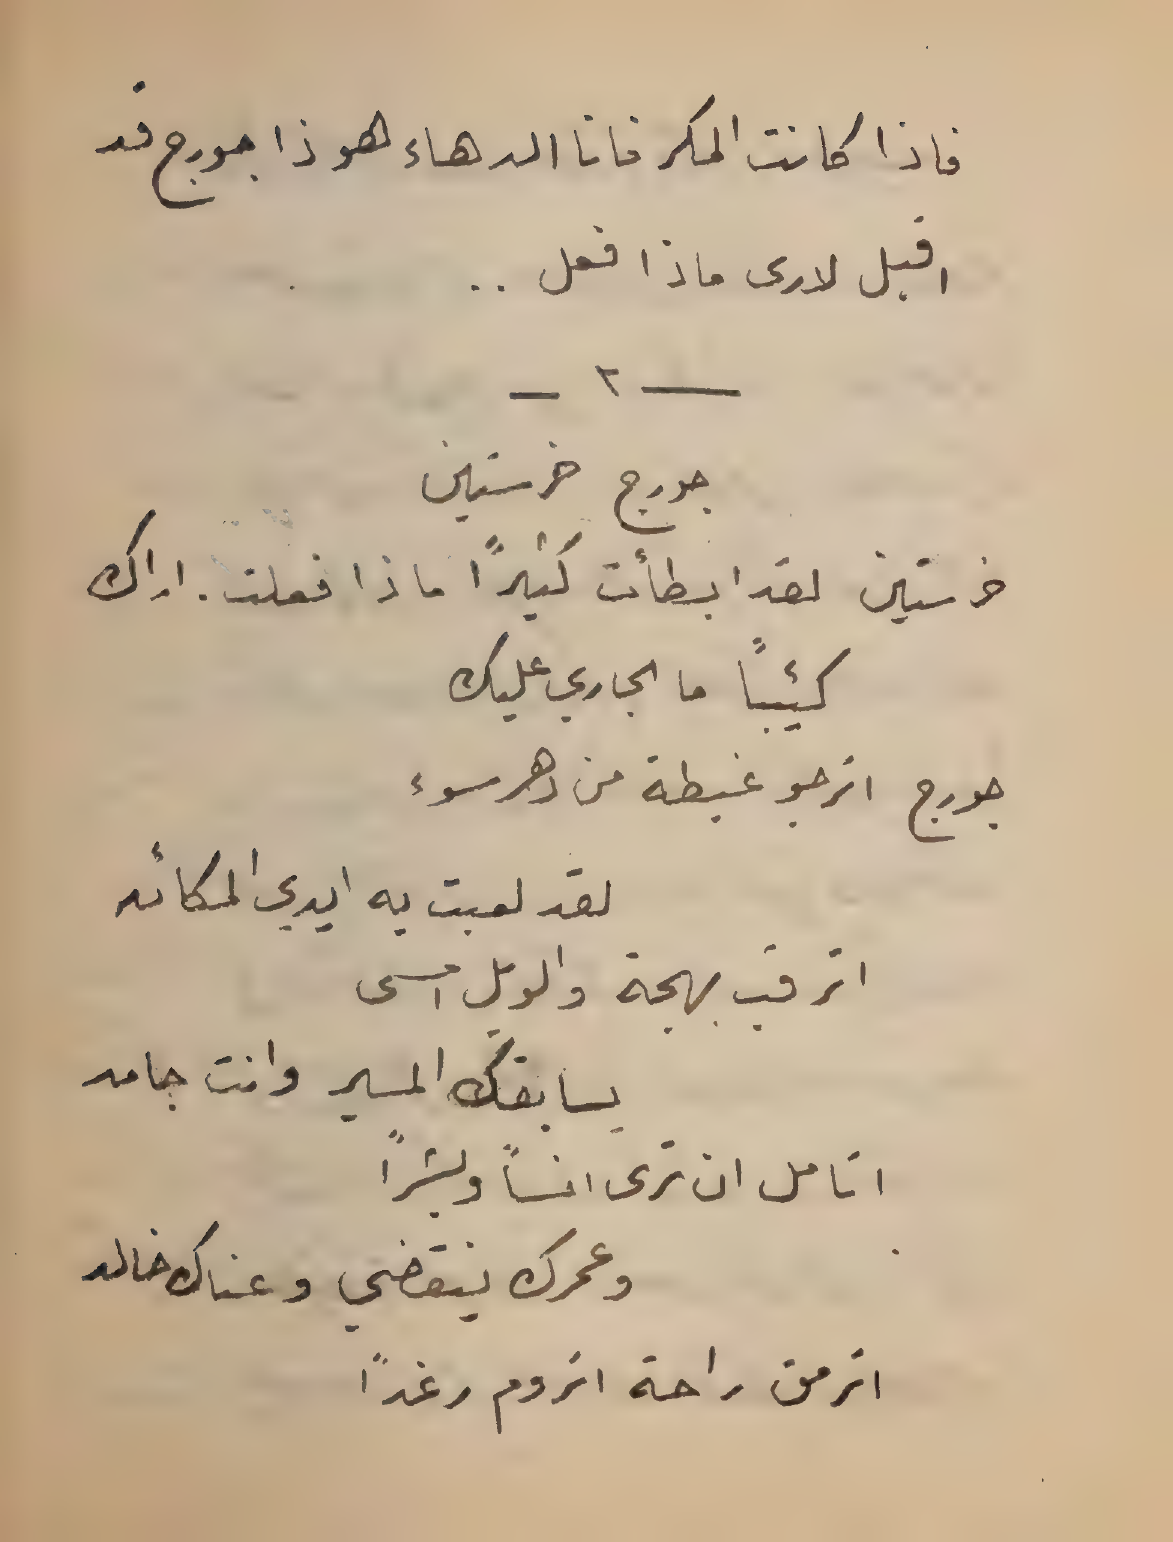 فاذا كانت المكر فانا الدهاء هوذا جورج قد
اقبل لارى ماذا فعل ..
— ٢ —
جورج خرستين
خرستين لقد ابطأت كثيرًا ماذا فعلت . اراك
كئيبًا ما الجاري عليك
جورج اترجو غبطة من دهر سوء
لقد لعبت به ايدي المكائد
اترقب بهجة والويل امسى
يسابقك المسير وانت جامد
اتامل ان ترى انسًا وبشرًا
وعمرك ينقضي وعناك خالد
اترمق راحة اتروم رغدًا